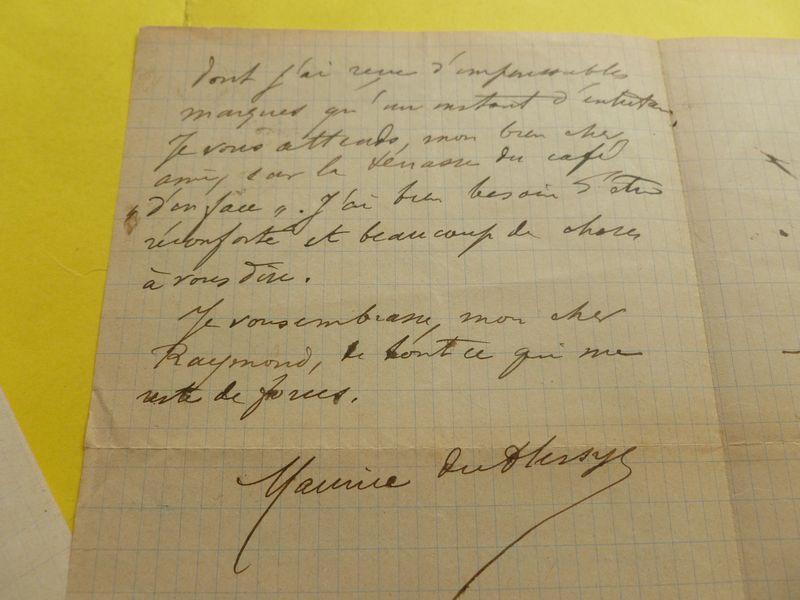 dont j'ai reçu d'impérissables
marques qu'un instant d'entretien.
Je vous attends, mon bien cher
ami, sur la terrasse du café
"d'en face". J'ai bien besoin d'être
réconforté et beaucoup de choses
à vous dire.
Je vous embrasse, mon cher
Raymond, de tout ce qui me
reste de forces.
Maurice du Plessys